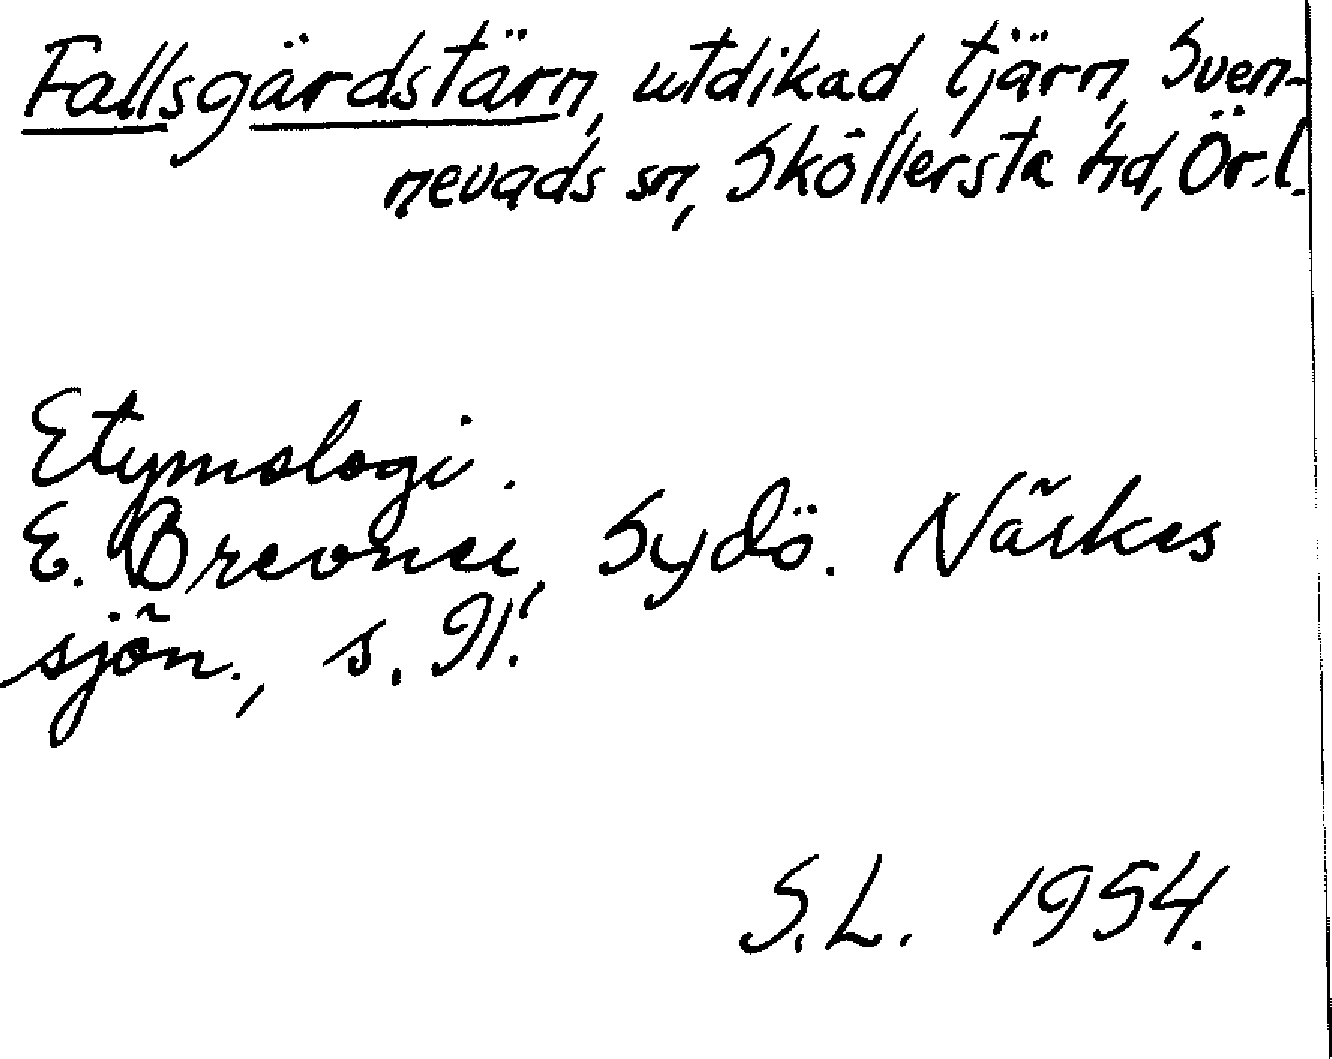 Fallsgärdstärn, utdikad tjärn, Sven-
nevads sn, Sköllersta hd, Ör. l.
Etymologi.
E. Brevner, Sydö. Närkes
sjön., s. 91.
S.L. 1954.